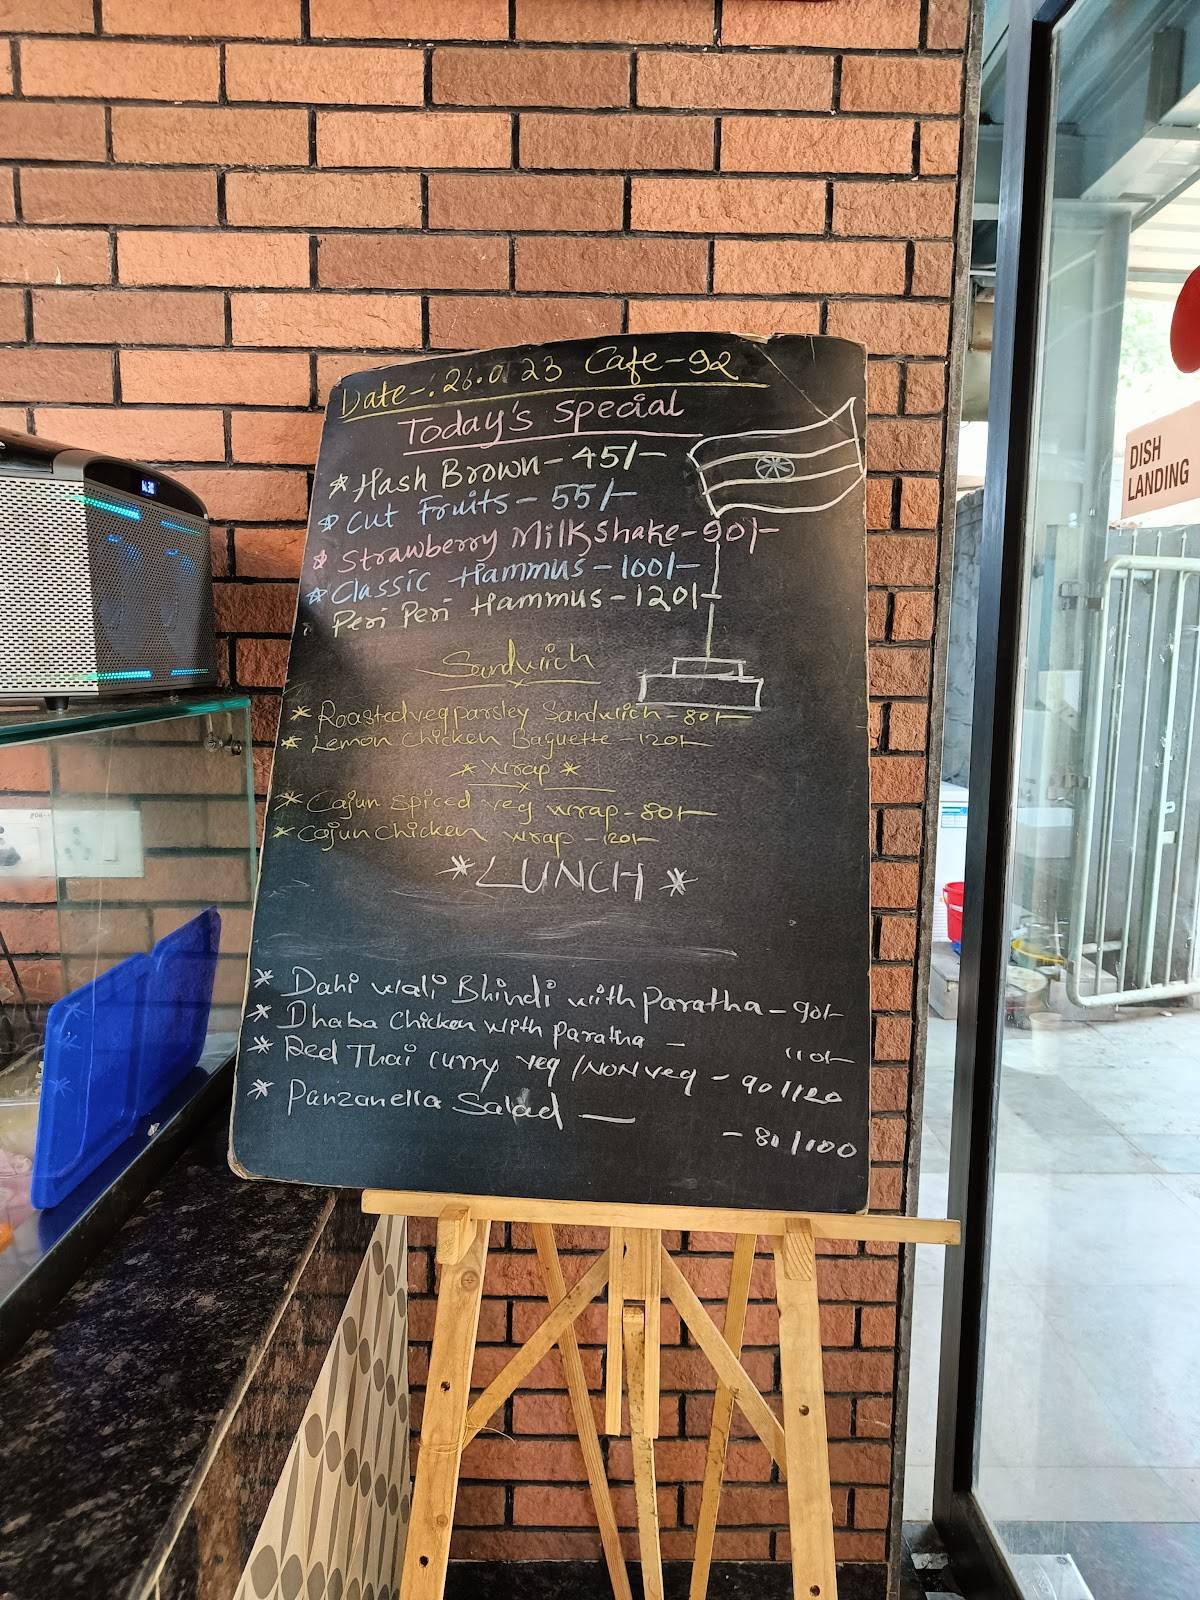 Date-: 26.0 23 Cafe-92
Today's Special
Hash Brown - 45/-
Cut Fruits - 55/-
Strawberry Milkshake - 90/-
Classic Hammus - 100/-
Peri Peri Hammus - 120/-
Sandwich
Roasted veg parsley Sandwich - 80/-
Lemon Chicken Baguette - 120/-
* Wrap *
* Cajun spiced veg wrap - 80/-
* Cajun Chicken wrap - 120/-
* LUNCH *
* Dahi wali Bhindi with Paratha - 90/-
* Dhaba Chicken with Paratha - 110/-
* Red Thai curry veg / NON veg - 90/120
* Panzanella Salad - 80/100
DISH
LANDING